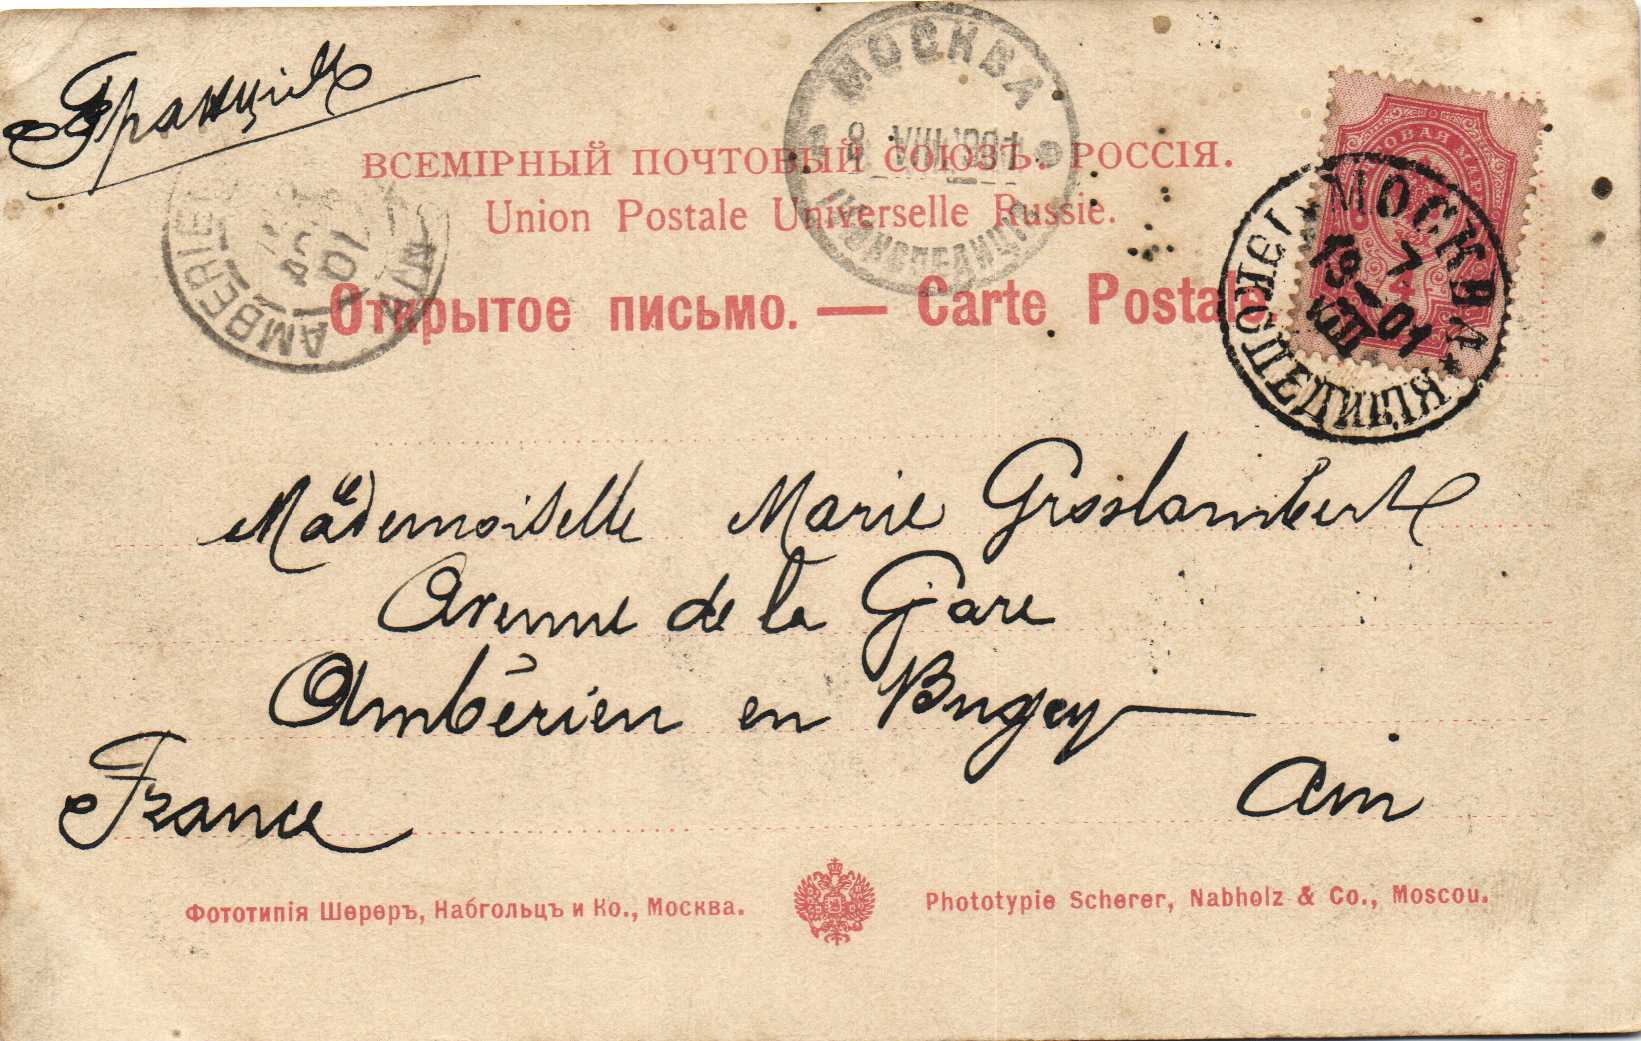 Францiя
ВСЕМIРНЫЙ ПОЧТОВЫЙ СОЮЗЪ. РОССIЯ.
Union Postale Universelle Russie.
Открытое письмо. — Carte Postale.
МОСКВА
8 VIII 1901
МОСКВА
7
19 VIII 01
ПОЧТОВАЯ МАРКА
AMBERIEU
AIN
01
Mademoiselle Marie Groslambert
Avenue de la Gare
Ambérieu en Bugey
Ain
France
Фототипiя Шереръ, Набгольцъ и Ко., Москва.
Phototypie Scherer, Nabholz & Co., Moscou.